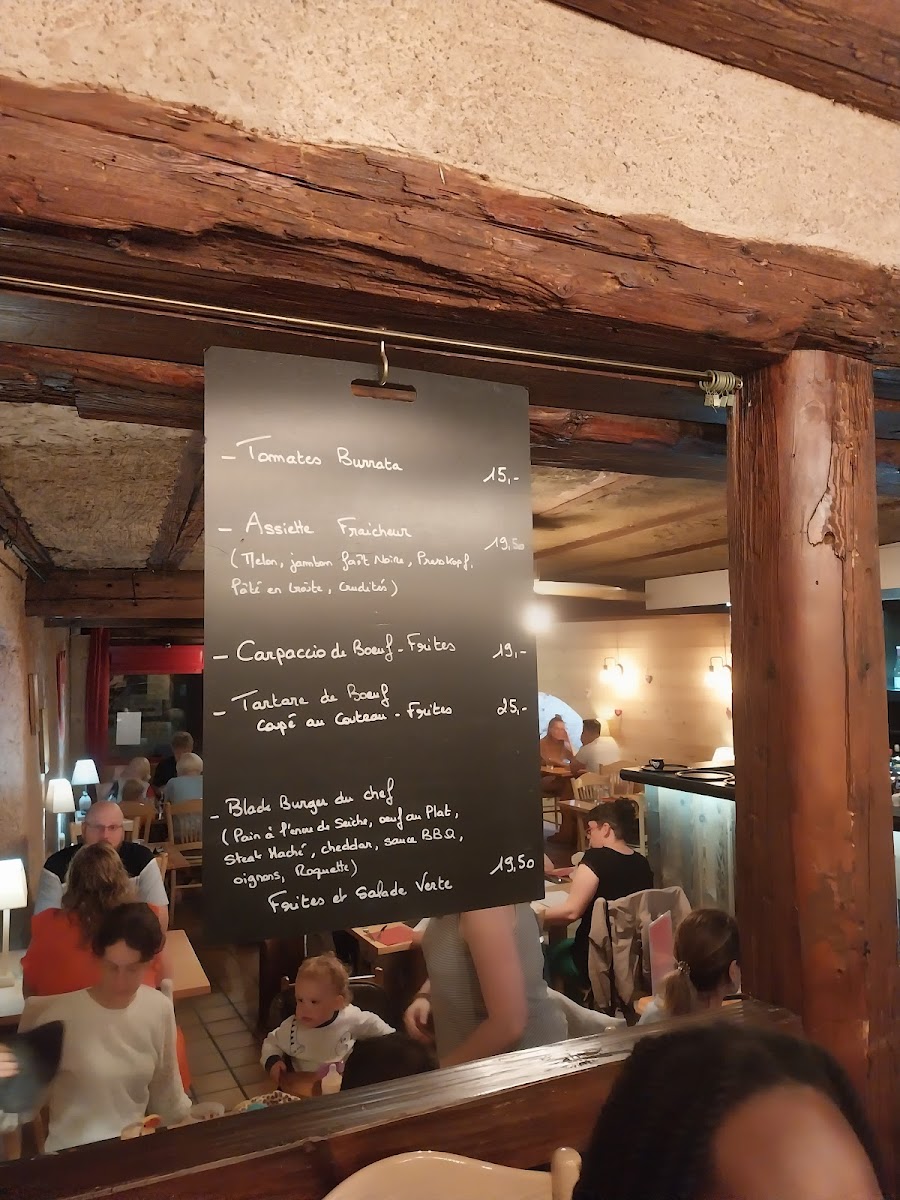 - Tomates Burrata
15,-
- Assiette Fraîcheur
19,50
(Melon, jambon forêt Noire, Preskopf,
Pâté en Croûte, Crudités)
- Carpaccio de Boeuf - Frites 19,-
- Tartare de Boeuf
coupé au Couteau - Frites 25,-
- Black Burger du chef
(Pain à l'encre de Seiche, oeuf au Plat,
Steak Haché, cheddar, sauce BBQ,
oignons, Roquette) 19,50
Frites et Salade Verte